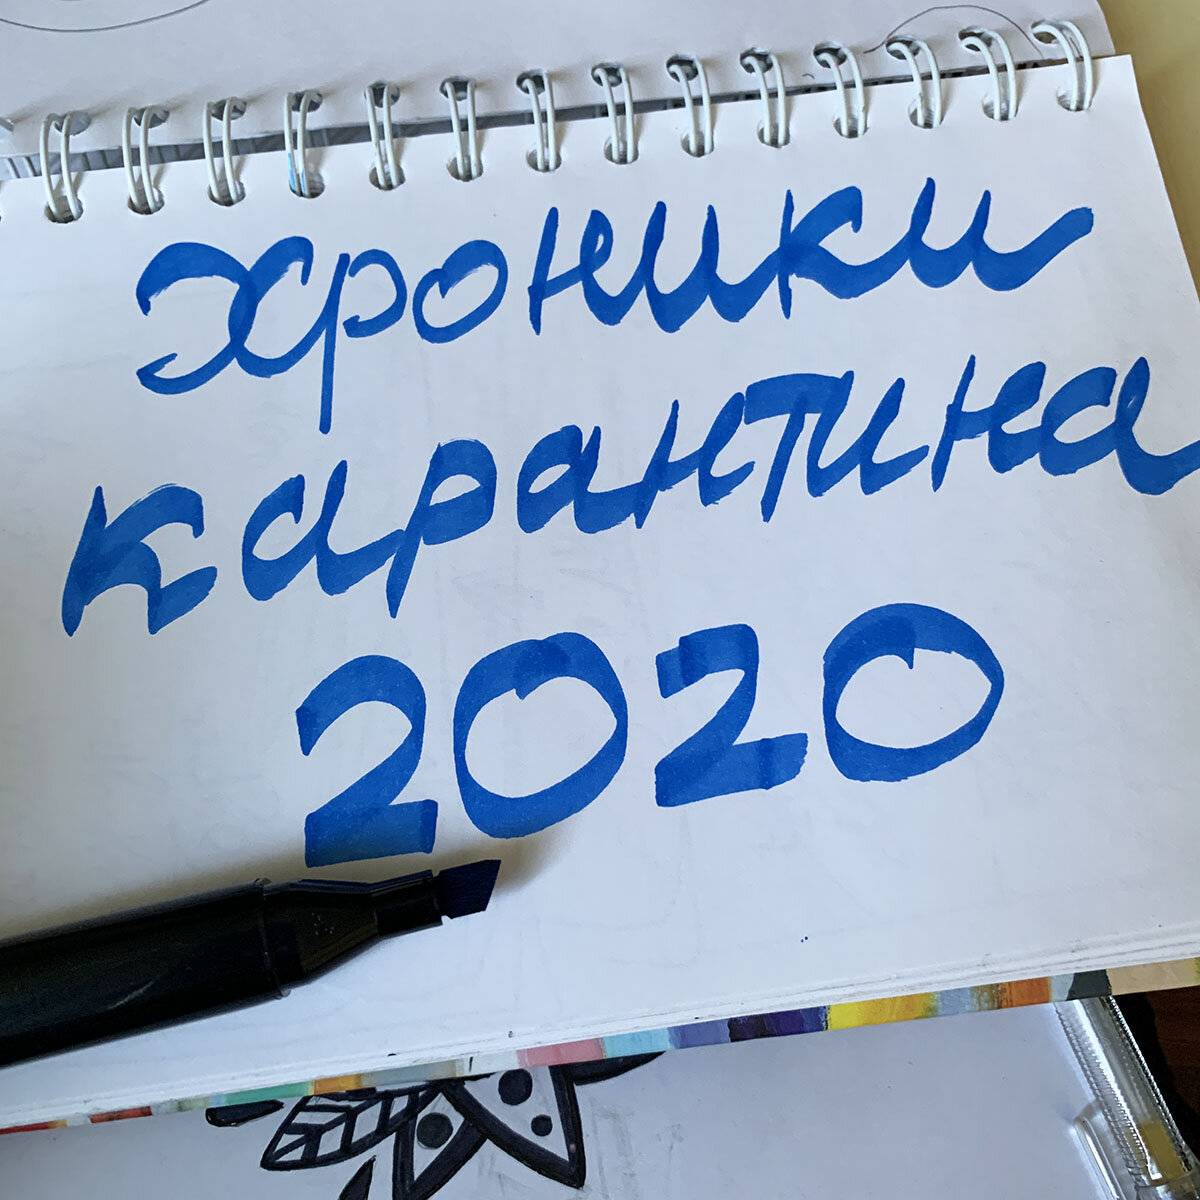 Хроники
карантина
2020